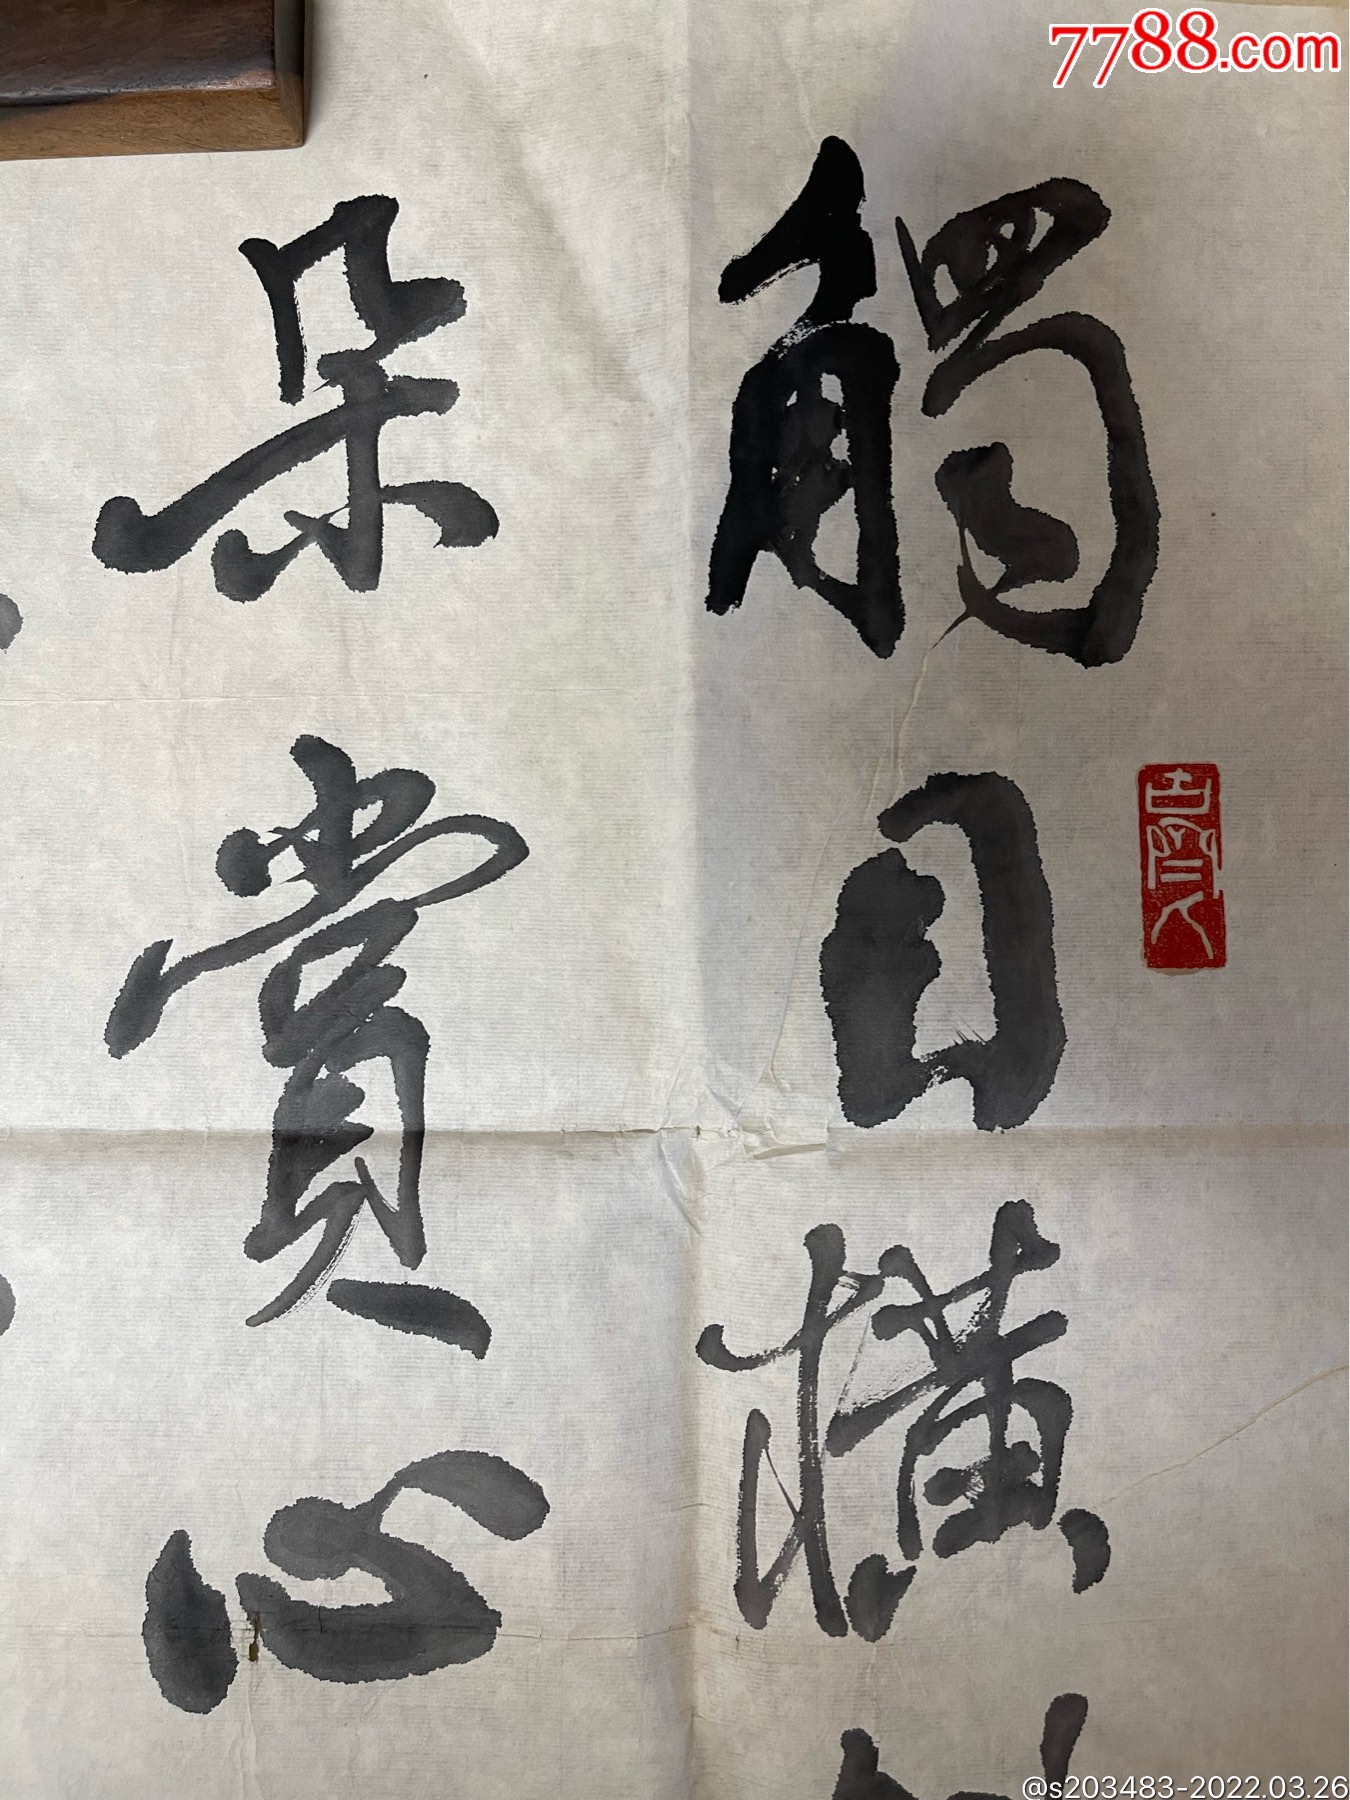 7788.com
觸目橫
朵賞心
@s203483-2022.03.26